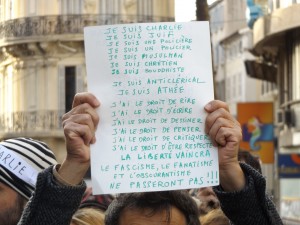 JE SUIS CHARLIE
JE SUIS JUIF
JE SUIS UNE POLICIÈRE
JE SUIS UN POLICIER
JE SUIS MUSULMAN
JE SUIS CHRÉTIEN
JE SUIS BOUDDHISTE
JE SUIS ANTICLÉRICAL
JE SUIS ATHÉE
J'AI LE DROIT DE RIRE
J'AI LE DROIT D'ÉCRIRE
J'AI LE DROIT DE DESSINER
J'AI LE DROIT DE PENSER
J'AI LE DROIT DE CRITIQUER
J'AI LE DROIT D'ÊTRE RESPECTÉ
LA LIBERTÉ VAINCRA
LE FASCISME, LE FANATISME
ET L'OBSCURANTISME
NE PASSERONT PAS !!!
CHARLIE